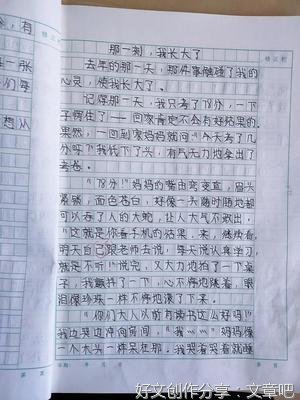 那一刻,我长大了
去年的那一天,那件事触碰了我的
心灵,使我长大了。
记得那一天,我只考了78分,一下
子愣住了——回家肯定不会有好结果的。
果然,一回到家妈妈就问:“今天考了几
分呀?”我低下了头,有气无力地拿出了
考卷。
“78分!”妈妈的嘴由弯变直,眉头
紧锁,面色苍白,好像一头随时随地都
可以吞了人的大蛇,让人大气不敢出。
“这就是你看手机的结果,来,继续看,
明天自己跟老师去说,每天说认真学习,
就是不听!”说完,又大力地拍了一下桌
子,我颤抖了一下,心不停地跳着,眼
泪像珍珠一样不停地滚了下来。
“你们大人以前有读书这么好吗?”
我边哭边冲向房间,“我……”妈妈像
一个木头一样呆在那。我哭着哭着就睡
会,有
一胀
们每
想从
修正栏
修正栏
第 页
好文创作分享:文章吧